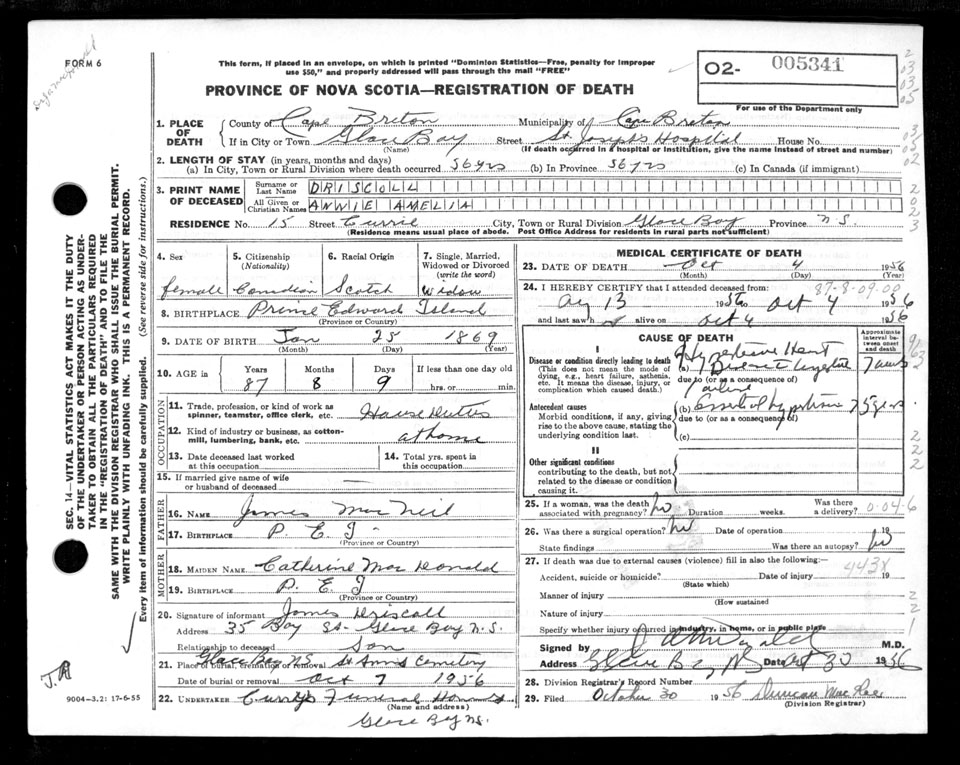 FORM 6
This form, if placed in an envelope, on which is printed "Dominion Statistics—Free, penalty for improper
use $50," and properly addressed will pass through the mail "FREE"
PROVINCE OF NOVA SCOTIA—REGISTRATION OF DEATH
O2- 005341
For use of the Department only
1. PLACE OF DEATH
County of Cape Breton Municipality of Cape Breton
If in City or Town Glace Bay Street St. Joseph's Hospital House No.
(Name) (If death occurred in a hospital or institution, give the name instead of street and number)
2. LENGTH OF STAY (in years, months and days)
(a) In City, Town or Rural Division where death occurred 56 yrs (b) In Province 56 yrs (c) In Canada (if immigrant)
3. PRINT NAME OF DECEASED
Surname or Last Name DRISCOLL
All Given or Christian Names ANNIE AMELIA
RESIDENCE No. 15 Street Currie City, Town or Rural Division Glace Bay Province N.S.
(Residence means usual place of abode. Post Office Address for residents in rural parts not sufficient)
4. Sex
female
5. Citizenship (Nationality)
Canadian
6. Racial Origin
Scotch
7. Single, Married, Widowed or Divorced (write the word)
Widow
8. BIRTHPLACE Prince Edward Island
(Province or Country)
9. DATE OF BIRTH Jan 25 1869
(Month) (Day) (Year)
10. AGE in Years 87 Months 8 Days 9 If less than one day old hrs. or min.
OCCUPATION
11. Trade, profession, or kind of work as spinner, teamster, office clerk, etc. House Duties
12. Kind of industry or business, as cotton-mill, lumbering, bank, etc. at home
13. Date deceased last worked at this occupation
14. Total yrs. spent in this occupation
15. If married give name of wife or husband of deceased —
FATHER
16. NAME James MacNeil
17. BIRTHPLACE P. E. I
(Province or Country)
MOTHER
18. MAIDEN NAME Catherine MacDonald
19. BIRTHPLACE P. E. I
(Province or Country)
20. Signature of informant James Driscoll
Address 35 Bay St- Glace Bay N.S.
Relationship to deceased Son
21. Place of burial, cremation or removal Glace Bay NS St Anns Cemetery
Date of burial or removal Oct 7 1956
22. UNDERTAKER Currys Funeral Home
(Name and address)
Glace Bay NS.
MEDICAL CERTIFICATE OF DEATH
23. DATE OF DEATH Oct 4 1956
(Month) (Day) (Year)
24. I HEREBY CERTIFY that I attended deceased from: 87-8-09.00
Aug 13 1956 to Oct 4 1956
and last saw h alive on Oct 4 1956
CAUSE OF DEATH
Approximate interval between onset and death
I
Disease or condition directly leading to death
(This does not mean the mode of dying, e.g., heart failure, asthenia, etc. It means the disease, injury, or complication which caused death.)
(a) Hypertensive Heart Disease
due to (or as a consequence of)
failure
Antecedent causes
Morbid conditions, if any, giving rise to the above cause, stating the underlying condition last.
(b) Essential hypertension 75 years
due to (or as a consequence of)
(c)
II
Other significant conditions
contributing to the death, but not related to the disease or condition causing it.
25. If a woman, was the death associated with pregnancy? No Duration weeks. Was there a delivery?
0-04-6
26. Was there a surgical operation? No Date of operation 19
State findings Was there an autopsy? No
27. If death was due to external causes (violence) fill in also the following:
443X
Accident, suicide or homicide? Date of injury 19
(State which)
Manner of injury
(How sustained)
Nature of injury
Specify whether injury occurred in industry, in home, or in public place
Signed by M.D.
Address Glace Bay NS Date Oct 30 1956
28. Division Registrar's Record Number
29. Filed October 30 1956 Duncan MacRae
(Division Registrar)
SEC. 14—VITAL STATISTICS ACT MAKES IT THE DUTY
OF THE UNDERTAKER OR PERSON ACTING AS UNDER-
TAKER TO OBTAIN ALL THE PARTICULARS REQUIRED
IN THE "REGISTRATION OF DEATH" AND TO FILE THE
SAME WITH THE DIVISION REGISTRAR WHO SHALL ISSUE THE BURIAL PERMIT.
WRITE PLAINLY WITH UNFADING INK. THIS IS A PERMANENT RECORD.
Every item of information should be carefully supplied. (See reverse side for instructions.)
9004—3.2: 17-6-55